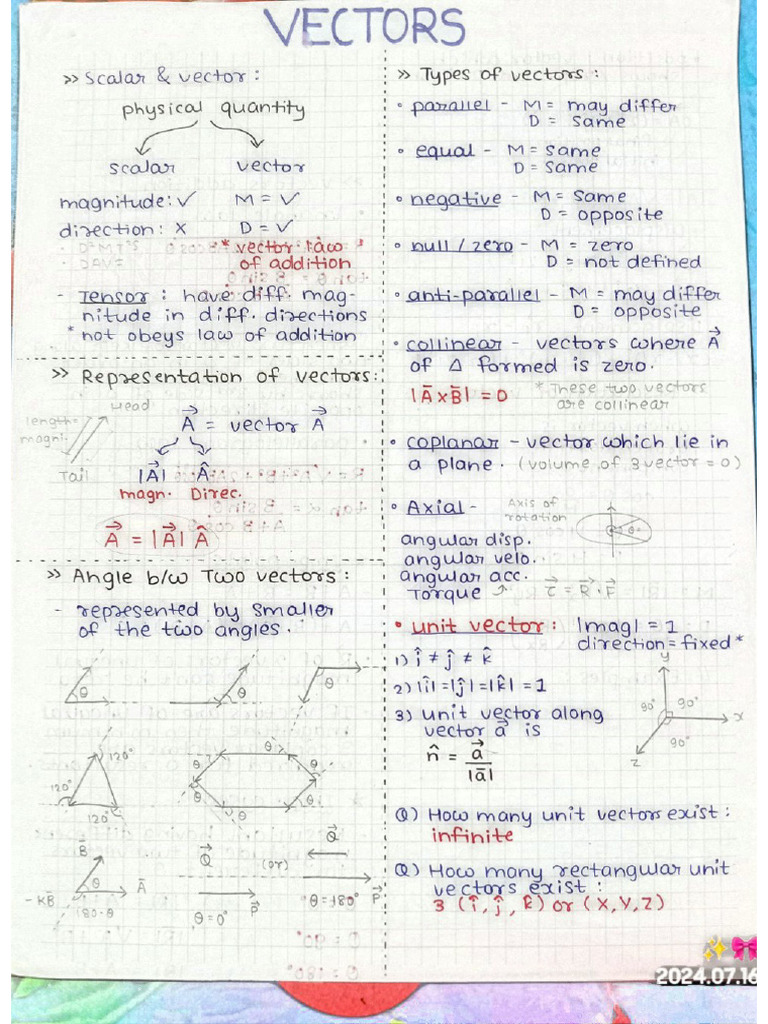 VECTORS
>> Scalar & vector :
physical quantity
scalar vector
magnitude: ✓ M = ✓
direction: X D = ✓
* vector law *
of addition
- Tensor : have diff. mag-
nitude in diff. directions
* not obeys law of addition
>> Representation of vectors:
Head
length=
magni.
Tail
A⃗ = vector A⃗
|A⃗| Â
magn. Direc.
A⃗ = |A⃗| Â
>> Angle b/w Two vectors :
- represented by smaller
of the two angles.
θ θ θ
120°
120°
120°
θ θ θ θ θ θ
B
θ
Ā
-KB̄
180-θ
Q⃗
P⃗
θ=0°
(or)
Q⃗
P⃗
θ=180°
>> Types of vectors :
• parallel - M = may differ
D = same
• equal - M = same
D = same
• negative - M = same
D = opposite
• null / zero - M = zero
D = not defined
• anti-parallel - M = may differ
D = opposite
• collinear - vectors where A⃗
of Δ formed is zero.
|Ā x B̄| = 0 * These two vectors
are collinear
• coplanar - vector which lie in
a plane. (volume of 3 vector = 0)
• Axial - Axis of
rotation
θ
angular disp.
angular velo.
angular acc.
Torque τ⃗ = R⃗ · F⃗
• unit vector : |mag| = 1
direction = fixed *
1) î ≠ ĵ ≠ k̂
2) |î| = |ĵ| = |k̂| = 1
3) unit vector along
vector a⃗ is
n̂ = a⃗
|ā|
y
90° 90°
x
90°
z
Q) How many unit vectors exist :
infinite
Q) How many rectangular unit
vectors exist :
3 (î, ĵ, k̂) or (X, Y, Z)
2024.07.16